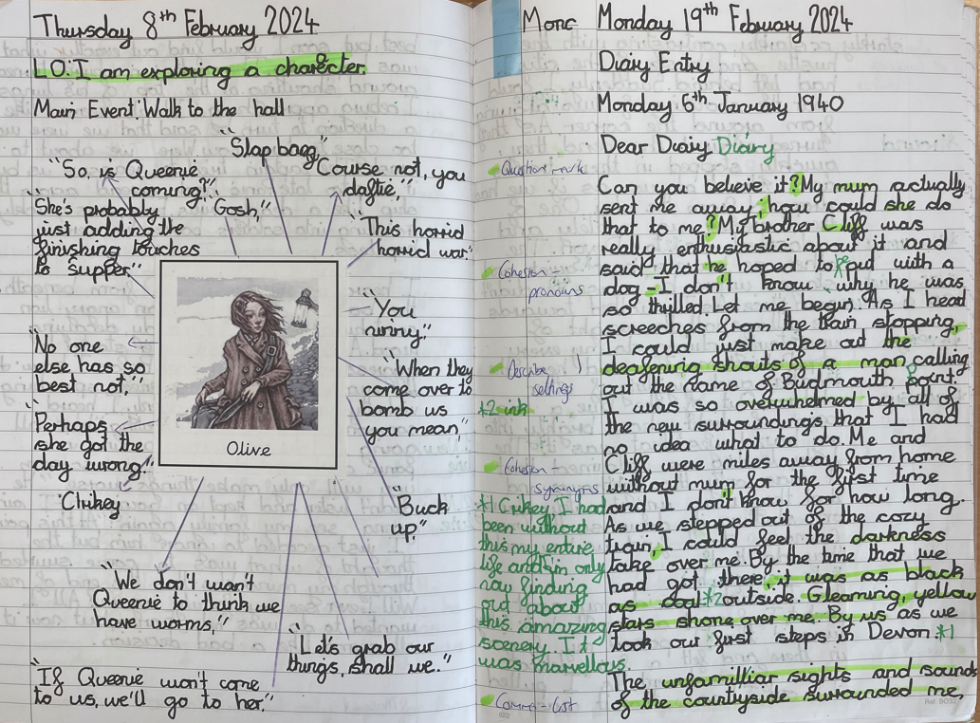 Thursday 8th February 2024
LO: I am exploring a character.
Main Event: Walk to the hall
"Slap bang,"
"So, is Queenie
coming?"
"Course not, you
daftie,"
"She's probably
just adding the
finishing touches
to supper."
"Gosh,"
"This horrid
horrid war."
"You
ninny"
"No one
else has so
best not,"
"When they
come over to
bomb us
you mean,"
"Perhaps
she got the
day wrong."
Olive
"Chikey
"Buck
up,"
"We don't want
Queenie to think we
have worms,"
"Let's grab our
things, shall we."
"If Queenie won't come
to us, we'll go to her."
Mone
Monday 19th February 2024
Diary Entry
Monday 6th January 1940
Dear Diaiy Diary
Question mark
Can you believe it? My mum actually
sent me away, how could she do
that to me? My brother Cliff was
really enthusiastic about it and
said that he hoped to put with a
dog - I don't know why he was
so thrilled. Let me begin. As I head
screeches from the train stopping,
I could just make out the
deafening shouts of a man calling
out the name of Budmouth point.
I was so overwhelmed by all of
the new surroundings that I had
no idea what to do. Me and
Cliff were miles away from home
without mum for the first time
and I don't know for how long.
As we stepped out of the cozy
train, I could feel the darkness
take over me. By the time that we
had got there, it was as black
as coal *2 outside. Gleaming, yellow
stars shone over me. By us as we
took our first steps in Devon. *1
The unfamilliar sights and sounds
of the countryside surrounded me,
Cohesion -
pronouns
Describe
settings
*2 ink
Cohesion -
synonyms
*1 Crikey I had
been without
this my entire
life and im only
now finding
out about
this amazing
scenery. It
was marvellous.
Comma - list